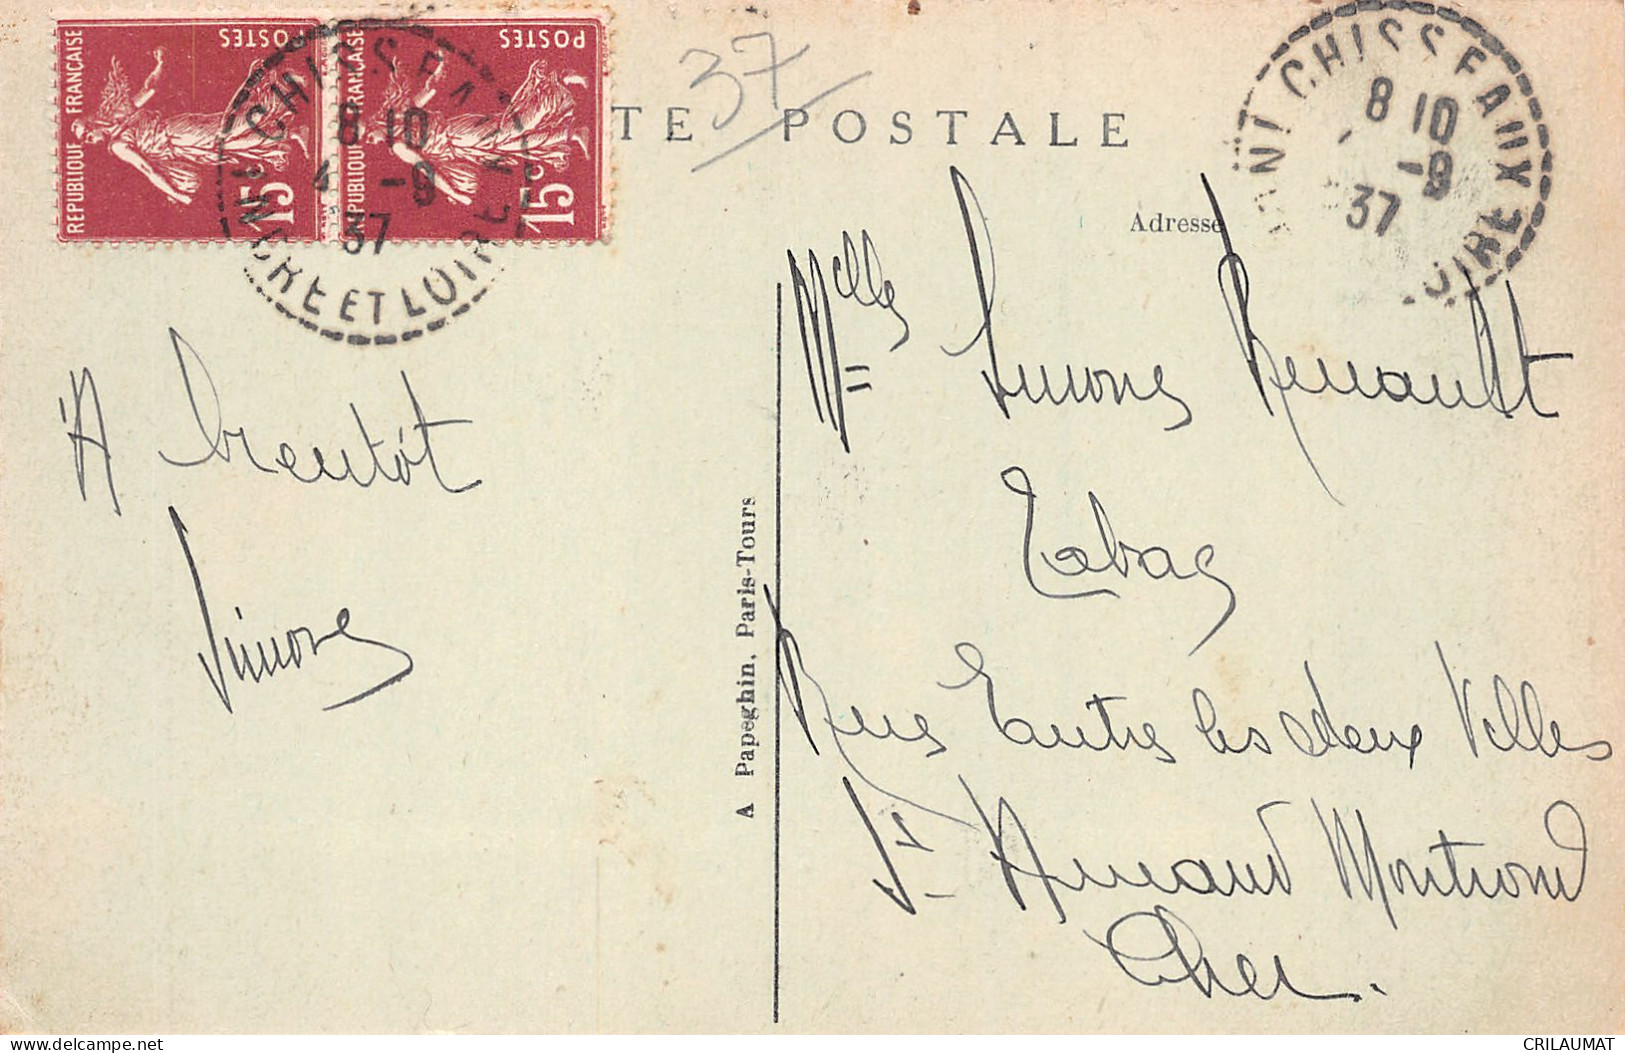 REPUBLIQUE FRANÇAISE POSTES 15c
REPUBLIQUE FRANÇAISE POSTES 15c
CHISSEAUX
8 10
-9
37
INDRE ET LOIRE
37
TE POSTALE
CHISSEAUX
8 10
-9
37
LOIRE
Adresse
Melle Simone Renault
Tabac
Rue Entre les deux Villes
St Amand Montrond
Cher.
A bientôt
Simone
A Papeghin, Paris-Tours
CRILAUMAT
delcampe.net